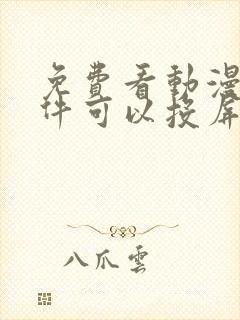 免費看動漫
件可以投屏
八爪雲